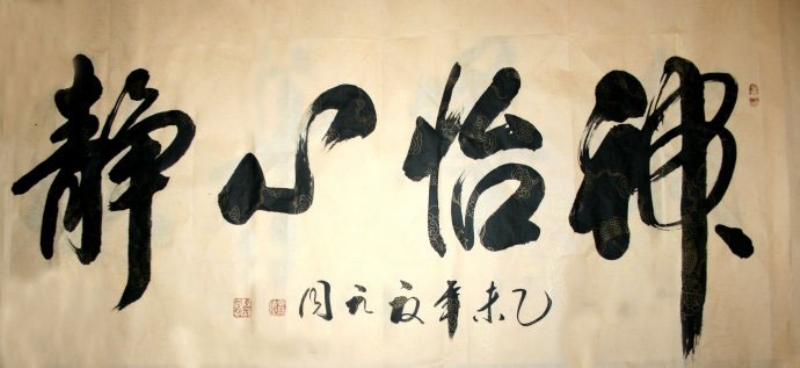 神怡心静
乙未年夏元周